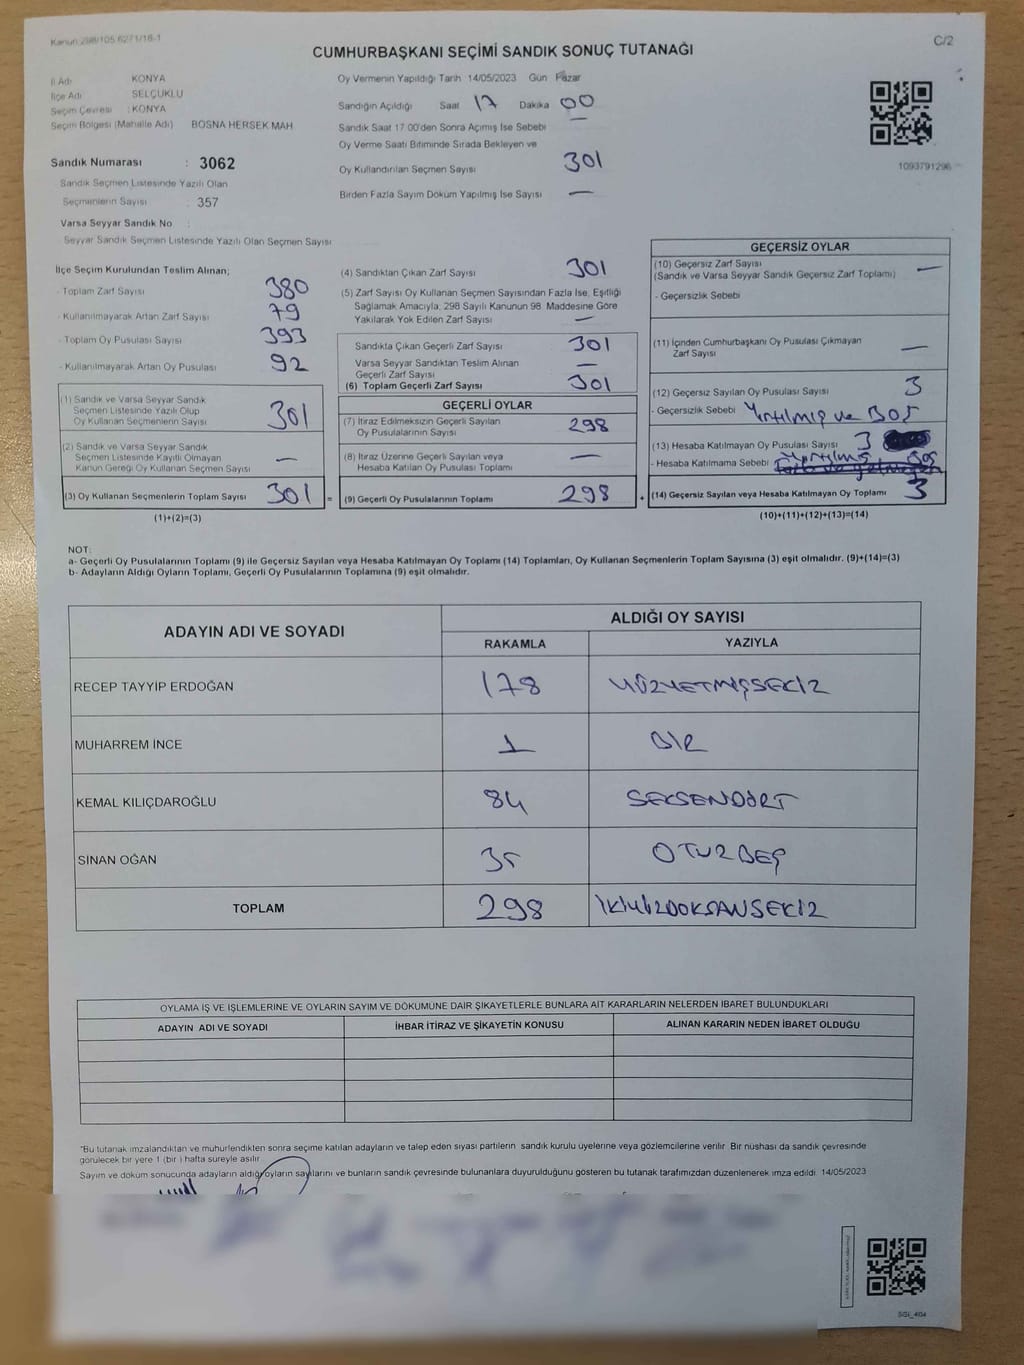 Kanun 298/105 6271/18-1
C/2
CUMHURBAŞKANI SEÇİMİ SANDIK SONUÇ TUTANAĞI
İl Adı KONYA
İlçe Adı SELÇUKLU
Seçim Çevresi : KONYA
Seçim Bölgesi (Mahalle Adı) BOSNA HERSEK MAH.
Sandık Numarası : 3062
Sandık Seçmen Listesinde Yazılı Olan
Seçmenlerin Sayısı : 357
Varsa Seyyar Sandık No :
Seyyar Sandık Seçmen Listesinde Yazılı Olan Seçmen Sayısı
Oy Vermenin Yapıldığı Tarih 14/05/2023 Gün Pazar
Sandığın Açıldığı Saat 17 Dakika 00
Sandık Saat 17 00'den Sonra Açılmış İse Sebebi —
Oy Verme Saati Bitiminde Sırada Bekleyen ve
Oy Kullandırılan Seçmen Sayısı 301
Birden Fazla Sayım Döküm Yapılmış İse Sayısı —
1093791296
İlçe Seçim Kurulundan Teslim Alınan;
- Toplam Zarf Sayısı 380
- Kullanılmayarak Artan Zarf Sayısı 79
- Toplam Oy Pusulası Sayısı 393
- Kullanılmayarak Artan Oy Pusulası 92
(1) Sandık ve Varsa Seyyar Sandık
Seçmen Listesinde Yazılı Olup
Oy Kullanan Seçmenlerin Sayısı 301
(2) Sandık ve Varsa Seyyar Sandık
Seçmen Listesinde Kayıtlı Olmayan
Kanun Gereği Oy Kullanan Seçmen Sayısı —
(3) Oy Kullanan Seçmenlerin Toplam Sayısı 301 =
(1)+(2)=(3)
(4) Sandıktan Çıkan Zarf Sayısı 301
(5) Zarf Sayısı Oy Kullanan Seçmen Sayısından Fazla İse, Eşitliği
Sağlamak Amacıyla, 298 Sayılı Kanunun 98. Maddesine Göre
Yakılarak Yok Edilen Zarf Sayısı —
Sandıkta Çıkan Geçerli Zarf Sayısı 301
Varsa Seyyar Sandıktan Teslim Alınan
Geçerli Zarf Sayısı —
(6) Toplam Geçerli Zarf Sayısı 301
GEÇERLİ OYLAR
(7) İtiraz Edilmeksizin Geçerli Sayılan
Oy Pusulalarının Sayısı 298
(8) İtiraz Üzerine Geçerli Sayılan veya
Hesaba Katılan Oy Pusulası Toplamı —
(9) Geçerli Oy Pusulalarının Toplamı 298 +
GEÇERSİZ OYLAR
(10) Geçersiz Zarf Sayısı
(Sandık ve Varsa Seyyar Sandık Geçersiz Zarf Toplamı) —
- Geçersizlik Sebebi
(11) İçinden Cumhurbaşkanı Oy Pusulası Çıkmayan
Zarf Sayısı —
(12) Geçersiz Sayılan Oy Pusulası Sayısı 3
- Geçersizlik Sebebi Yırtılmış ve BOŞ
(13) Hesaba Katılmayan Oy Pusulası Sayısı 3
- Hesaba Katılmama Sebebi Yırtılmış BOŞ
(14) Geçersiz Sayılan veya Hesaba Katılmayan Oy Toplamı 3
(10)+(11)+(12)+(13)=(14)
NOT:
a- Geçerli Oy Pusulalarının Toplamı (9) ile Geçersiz Sayılan veya Hesaba Katılmayan Oy Toplamı (14) Toplamları, Oy Kullanan Seçmenlerin Toplam Sayısına (3) eşit olmalıdır. (9)+(14)=(3)
b- Adayların Aldığı Oyların Toplamı, Geçerli Oy Pusulalarının Toplamına (9) eşit olmalıdır.
ADAYIN ADI VE SOYADI ALDIĞI OY SAYISI
RAKAMLA YAZIYLA
RECEP TAYYİP ERDOĞAN 178 YÜZYETMİŞSEKİZ
MUHARREM İNCE 1 BİR
KEMAL KILIÇDAROĞLU 84 SEKSENDÖRT
SİNAN OĞAN 35 OTUZBEŞ
TOPLAM 298 İKİYÜZDOKSANSEKİZ
OYLAMA İŞ VE İŞLEMLERİNE VE OYLARIN SAYIM VE DÖKÜMÜNE DAİR ŞİKAYETLERLE BUNLARA AİT KARARLARIN NELERDEN İBARET BULUNDUKLARI
ADAYIN ADI VE SOYADI İHBAR İTİRAZ VE ŞİKAYETİN KONUSU ALINAN KARARIN NEDEN İBARET OLDUĞU
*Bu tutanak imzalandıktan ve mühürlendikten sonra seçime katılan adayların ve talep eden siyasi partilerin sandık kurulu üyelerine veya gözlemcilerine verilir. Bir nüshası da sandık çevresinde
görülecek bir yere 1 (bir ) hafta süreyle asılır.
Sayım ve döküm sonucunda adayların aldığı oyların sayılarını ve bunların sandık çevresinde bulunanlara duyurulduğunu gösteren bu tutanak tarafımızdan düzenlenerek imza edildi. 14/05/2023
SGI_404